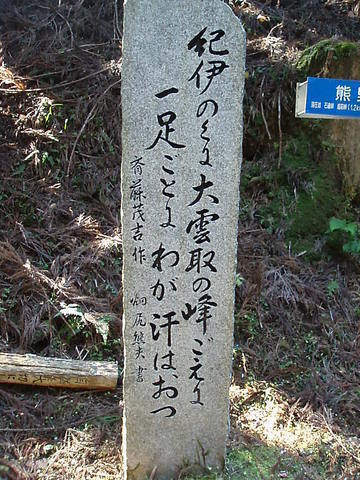 紀伊のくに大雲取の峰ごえに
一足ごとにわが汗はおつ
斎藤茂吉作 畑尻継夫書
熊